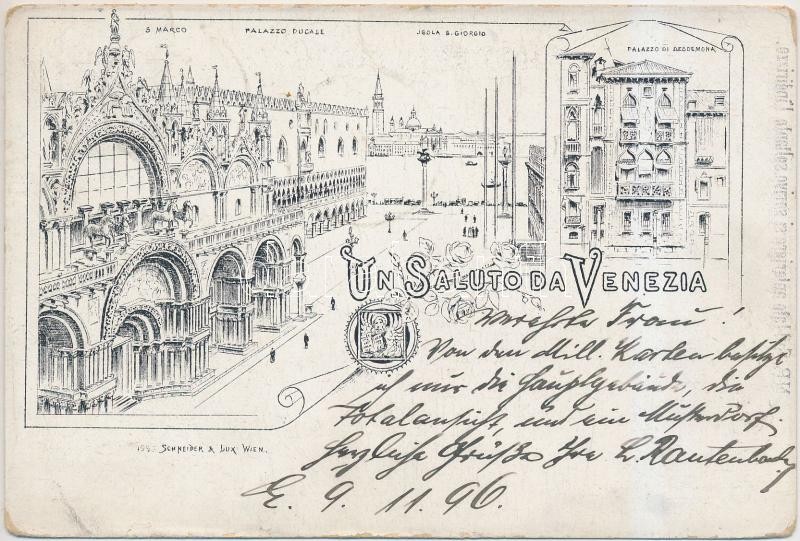 S MARCO
PALAZZO DUCALE
ISOLA S. GIORGIO
PALAZZO DI DESDEMONA
UN SALUTO DA VENEZIA
Verehrte Frau!
Von den Mill. Karten besitze
ich nur die Hauptgebäude, die
Totalansicht, und ein Musterdorf.
Herzliche Grüße Ihre L. Rautenbach
E. 9. 11. 96.
SCHNEIDER & LUX WIEN.